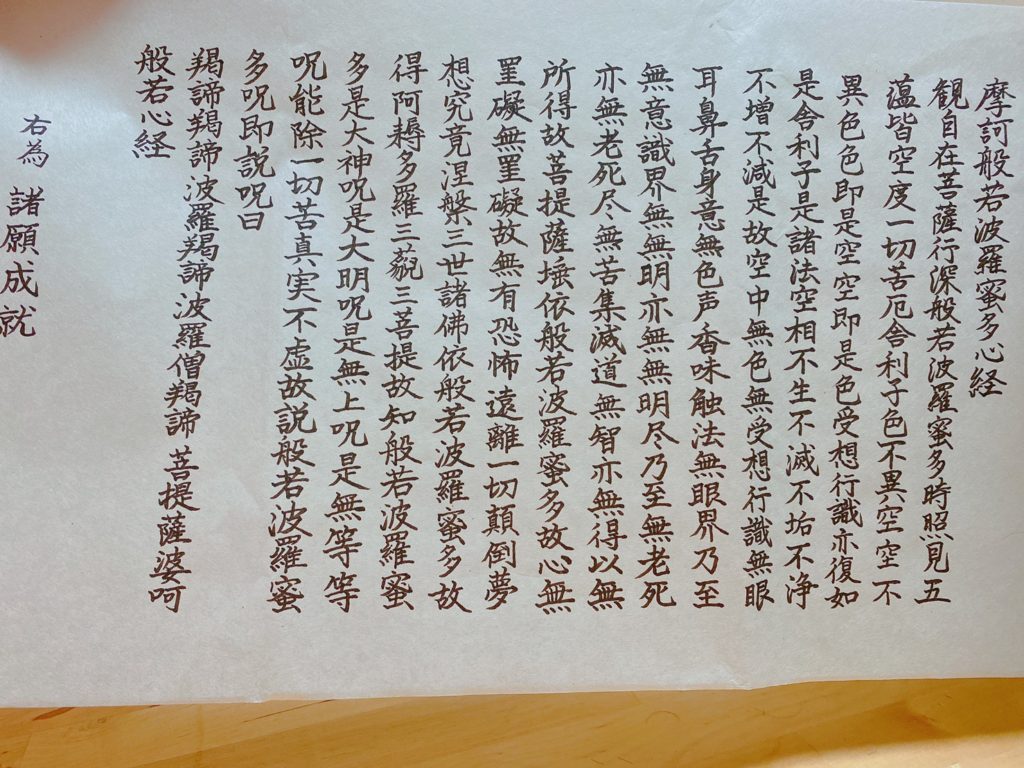 摩訶般若波羅蜜多心経
観自在菩薩行深般若波羅蜜多時照見五
蕰皆空度一切苦厄舎利子色不異空空不
異色色即是空空即是色受想行識亦復如
是舎利子是諸法空相不生不滅不垢不浄
不増不減是故空中無色無受想行識無眼
耳鼻舌身意無色声香味触法無眼界乃至
無意識界無無明亦無無明尽乃至無老死
亦無老死尽無苦集滅道無智亦無得以無
所得故菩提薩埵依般若波羅蜜多故心無
罣礙無罣礙故無有恐怖遠離一切顛倒夢
想究竟涅槃三世諸佛依般若波羅蜜多故
得阿耨多羅三藐三菩提故知般若波羅蜜
多是大神呪是大明呪是無上呪是無等等
呪能除一切苦真実不虚故説般若波羅蜜
多呪即説呪曰
羯諦羯諦波羅羯諦波羅僧羯諦菩提薩婆呵
般若心経
右為 諸願成就